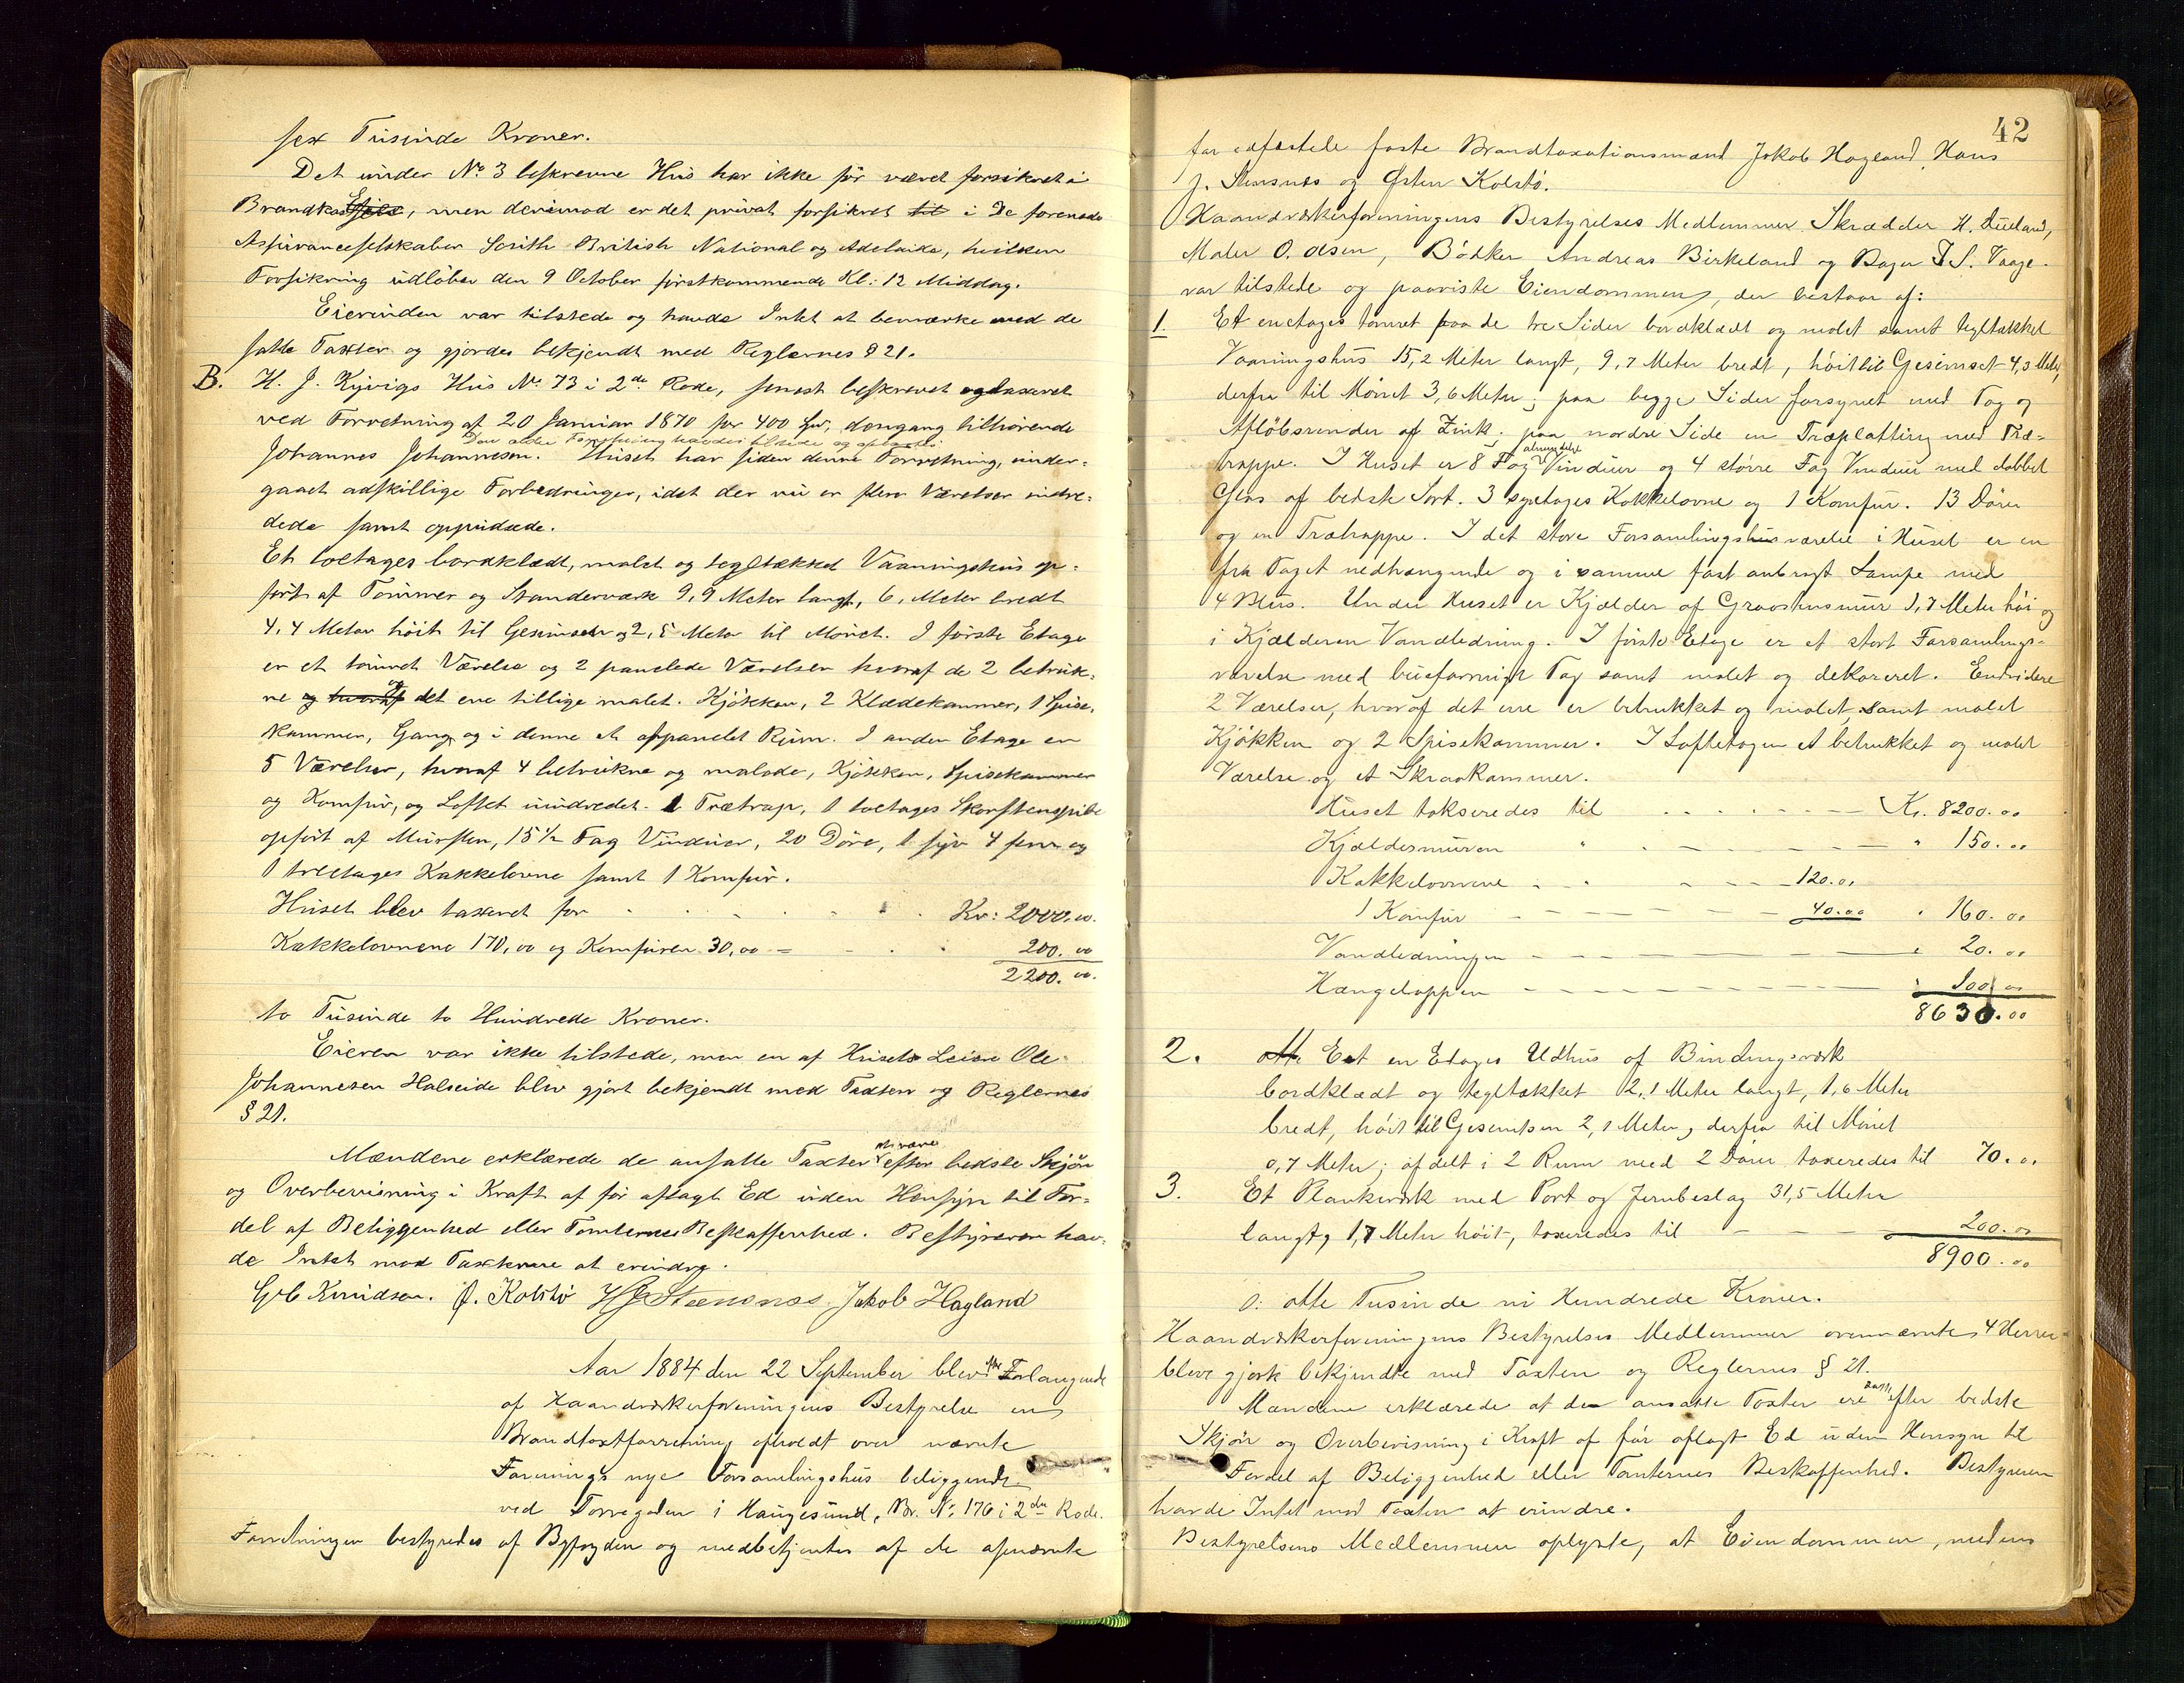 sex Tusinde Kroner.
Det under No 3 beskrevne Hus har ikke før været forsikret i
Brandkassen, men derimod er det privat forsikret til i De forenede
Assuranceselskaber South British National og Adelaide, hvilken
Forsikring udløber den 9 October førstkommende Kl: 12 Middag.
Eierinden var tilstede og havde Intet at bemærke med de
satte Taxter og gjordes bekjendt med Reglernes § 21.
B. H. J. Kyvigs Hus No 73 i 2de Rode, senest beskrevet og taxeret
ved Forretning af 20 Januar 1870 for 400 Spd, dengang tilhørende
Den ældre Forretning havdes tilstede og oplæstes.
Johannes Johannesen. Huset har siden denne Forretning, under-
gaaet adskillige Forbedringer, idet der nu er flere Værelser indre-
dede samt oppudsede.
Et toetages bordklædt, malet og tegltækket Vaaningshus op-
ført af Tømmer og Standerværk 9,9 Meter langt, 6, Meter bredt
4,4 Meter høit til Gesimsen og 2,5 Meter til Mønet. I første Etage
er et tømret Værelse og 2 panelede Værelser hvoraf de 2 betruk-
ne og hvoraf og det ene tillige malet. Kjøkken, 2 Klædekammer, 1 Spise-
kammer, Gang, og i denne et afpanelet Rum. I anden Etage er
5 Værelser, hvoraf 4 betrukne og malede, Kjøkken, Spisekammer
og Komfur, og Loftet uindredet. 1 Trætrap, 1 toetages Skorstenspibe
opført af Mursten, 15½ Fag Vinduer, 20 Døre, 1 syv 4 fem og
1 treetages Kakkelovne samt 1 Komfur.
Huset blev taxeret for Kr: 2000,00.
Kakkelovnene 170,00 og Komfuren 30,00 = 200.00
2200.00.
to Tusinde to Hundrede Kroner.
Eieren var ikke tilstede, men en af Husets Leiere Ole
Johannesen Halseide blev gjort bekjendt med Taxten og Reglernes
§ 21.
Mændene erklærede de ansatte Taxter at være efter bedste Skjøn
og Overbevisning i Kraft af før aflagt Ed uden Hensyn til For-
del af Beliggenhed eller Tomternes Beskaffenhed. Bestyreren hav-
de Intet mod Taxterne at erindre.
Gab Knudsen. Ø. Kolstø H J Stensnæs. Jakob Hagland
Aar 1884 den 22 September blev efter Forlangende
af Haandværkerforeningens Bestyrelse en
Brandtaxtforretning afholdt over nævnte
Forenings nye Forsamlingshus beliggende
ved Torvegaden i Haugesund, Br. No 176 i 2den Rode.
Forretningen bestyredes af Byfogden og medbetjentes af de afnævnte
42
før edfæstede faste Brandtaxationsmænd Jakob Hagland, Hans
J. Stensnæs og Østen Kolstø.
Haandværkerforeningens Bestyrelses Medlemmer Skrædder H. Dueland,
Maler O. Olsen, Bødker Andreas Birkeland og Bager J S. Vaage
var tilstede og paaviste Eiendommen, der bestaar af:
1. Et enetages tømret paa de tre Sider bordklædt og malet samt tegltækket
Vaaningshus 15,2 Meter langt, 9,7 Meter bredt, høit til Gesimset 4,3 Meter,
derfra til Mønet 3,6 Meter; paa begge Sider forsynet med Tag og
Afløbsrender af Zink; paa nordre Side en Træplatting med Træ-
trappe. I Huset er 8 Fag almindelige Vinduer og 4 større Fag Vinduer med dobbel
Glas af bedste Sort. 3 syvetages Kakkelovne og 1 Komfur. 13 Døre
og en Trætrappe. I det store Forsamlingshusværelse i Huset er en
fra Taget nedhængende og i samme fast anbragt Lampe med
4 Blus. Under Huset er Kjælder af Graastensmur 1,7 Meter høi og
i Kjælderen Vandledning. I første Etage er et stort Forsamlings-
værelse med bueformigt Tag samt malet og dekoreret. Endvidere
2 Værelser, hvoraf det ene er betrukket og malet, samt malet
Kjøkken og 2 Spisekammer. I Loftetagen et betrukket og malet
Værelse og et Skraakammer.
Huset takseredes til Kr. 8200.00
Kjældermuren " 150.00
Kakkelovnene 120.00
1 Komfur 40.00 " 160.00
Vandledningen " 20.00
Hængelappen " 100.00
8630.00
2. otte Et en Etages Udhus af Bindingsværk
bordklædt og tegltækket 2,1 Meter langt, 1,6 Meter
bredt, høit til Gesimsen 2,1 Meter, derfra til Mønet
0,7 Meter; afdelt i 2 Rum med 2 Døre taxeredes til 70.00
3. Et Plankeværk med Port og Jernbeslag 31,5 Meter
langt, 1,7 Meter høit, taxeredes til 200.00
8900.00
o: otte Tusinde ni Hundrede Kroner.
Haandværkerforeningens Bestyrelses Medlemmer ovennævnte 4 Herrer
bleve gjorte bekjendte med Taxten og Reglernes § 21.
Mændene erklærede at den ansatte Taxter ere efter bedste
Skjøn og Overbevisning i Kraft af før aflagt Ed uden Hensyn til
Fordel af Beliggenhed eller Tomternes Beskaffenhed. Bestyreren
havde Intet mod Taxten at erindre.
Bestyrelsens Medlemmer oplyste, at Eiendommen, medens